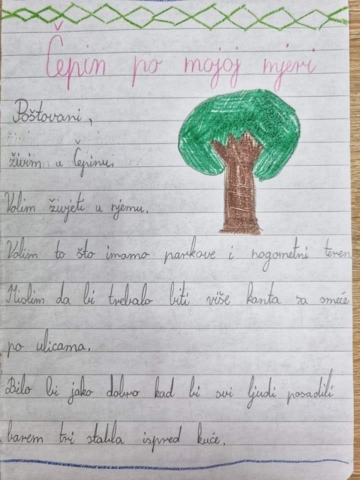 Čepin po mojoj mjeri
Poštovani,
živim u Čepinu.
Volim živjeti u njemu.
Volim to što imamo parkove i nogometni teren
Mislim da bi trebalo biti više kanta za smeće
po ulicama.
Bilo bi jako dobro kad bi svi ljudi posadili
barem tri stabla ispred kuće.